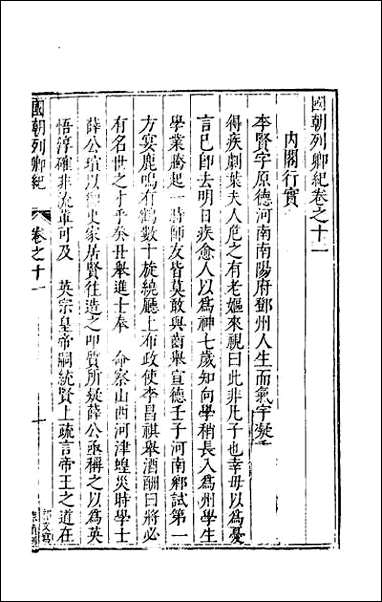 國朝列卿紀卷之十一
內閣行實
李賢字原德河南南陽府鄧州人生而氣宇凝
得疾劇葉夫人危之有老嫗來視曰此非凡子也幸毋以爲憂
言已卽去明日疾愈人以爲神七歲知向學稍長入爲州學生
學業騰起一時師友皆莫敢與齒舉宣德壬子河南鄉試第一
方宴鹿鳴有鶴數十旋繞廳上布政使李昌祺舉酒酬曰將必
有名世之士乎癸丑舉進士奉 命察山西河津蝗災時學士
薛公瑄以御史家居賢往造之叩質所疑薛公亟稱之以爲英
悟淳確非流輩可及 英宗皇帝嗣統賢上疏言帝王之道在
國朝列卿紀
卷之十一
一